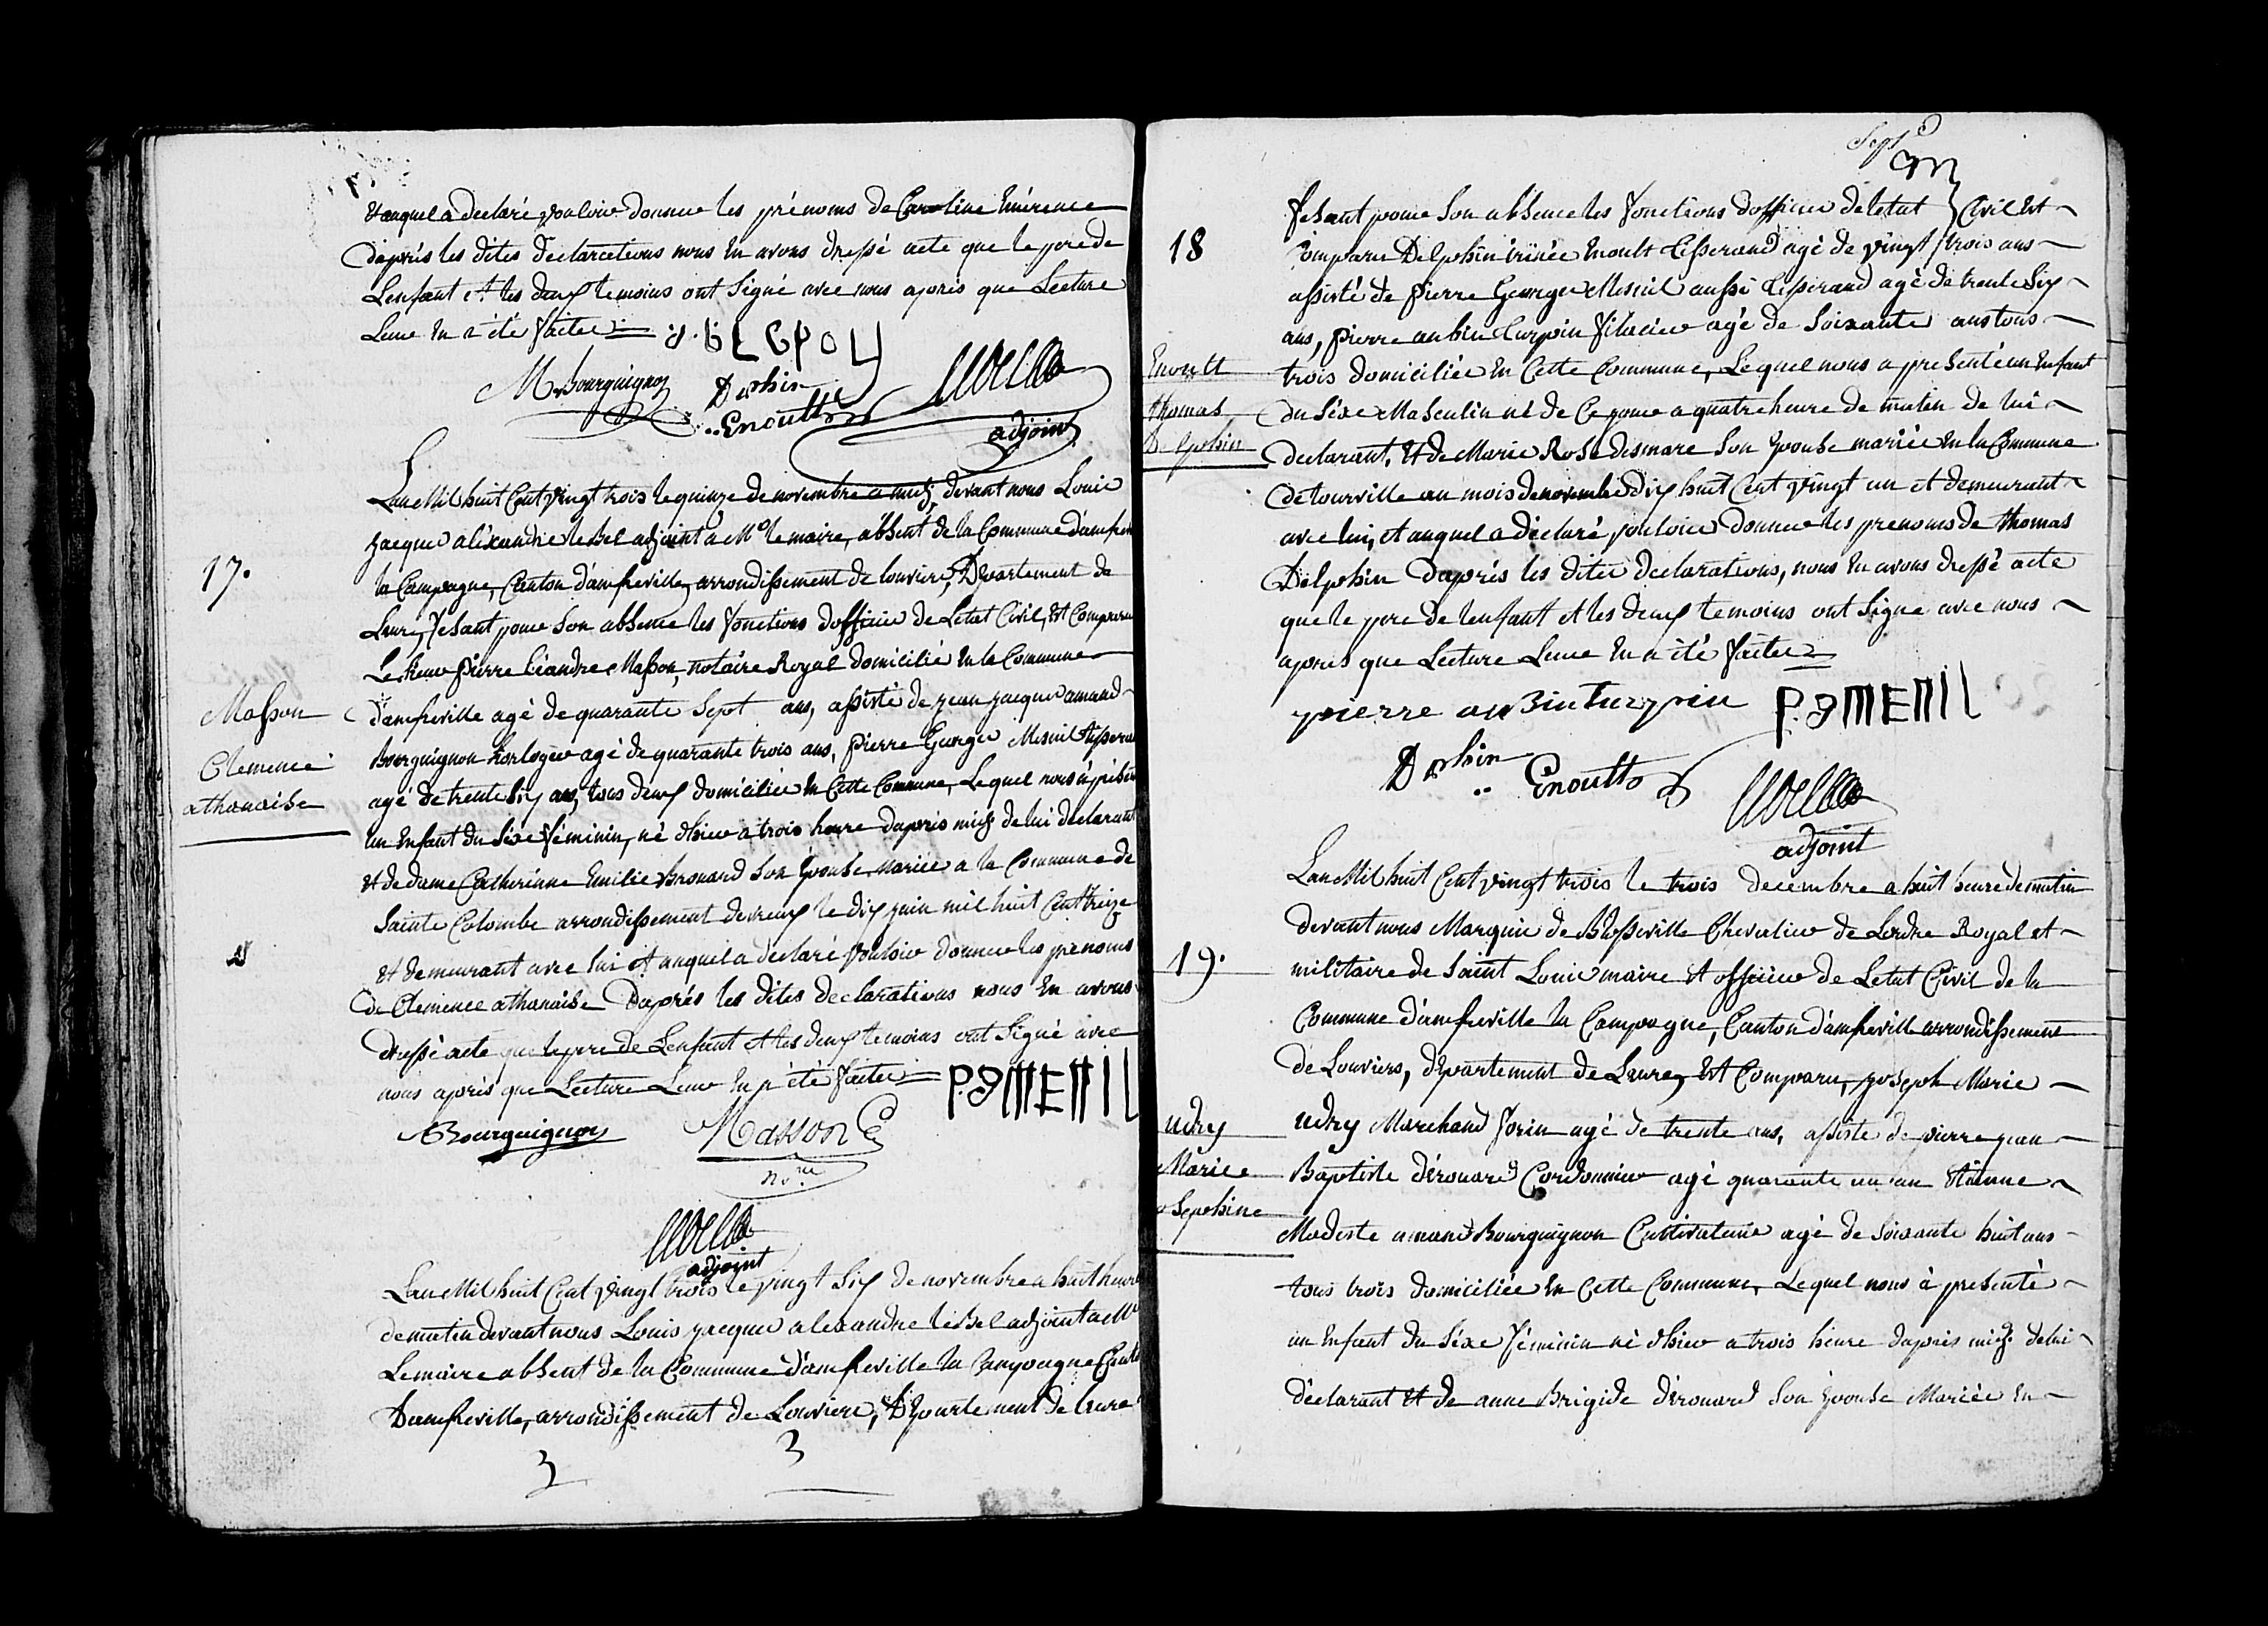 et auquel a declaré vouloir donner les prénoms de Caroline Emérence
Daprés les dites declarations nous en avons dressé acte que le pere de
Lenfant et les deux temoins ont signé avec nous aprés que Lecture
Leur en a été faite
M Bourguignon Delphin
Enoult
adjoint
Lan Mil huit Cent vingt trois le quinze de novembre a midy, devant nous Louis
jacque aléxandre lebel adjoint a Mr le maire, absent de la Commune d'amfreville
la Campagne, Canton d'amfreville, arrondissement de louviers, Département de
Leure, fesant pour son absence les fonctions dofficier de Letat Civil, Est Comparu
Le sieur pierre Léandre Masson, notaire Royal domicilié en la Commune
d'amfreville agé de quarante sept ans, assisté de jean jacque amand
Bourguignon horloger agé de quarante trois ans, pierre George Mesnil tisserand
agé de trente six ans, tous deux domiciliée en Cette Commune, Lequel nous à présenté
un Enfant du séxe féminin, né d'hier a trois heure daprés midy de lui declarant
et de dame Catherinne Emilie Brouard son Epouse Mariée a la Commune de
Sainte Colombe arrondissement devreux le dix juin mil huit Cent treize
et demeurant avec lui et auquel a déclaré vouloir donner les prenoms
de Clemence athanaise Daprés les dites declarations nous En avons
dressé acte que le pere de Lenfant et les deux temoins ont signé avec
nous aprés que Lecture Leur En a été faite
17.
Masson
Clemence
athanaise
P.G MENIL
Bourguignon Masson
adjoint
Lan Mil huit Cent vingt trois le vingt six de novembre a huit heure
de matin devant nous Louis jacque alexandre lebel adjoint a Mr
Lemaire absent de la Commune d'amfreville la Campagne Canton
Damfreville, arrondissement de Louviers, Département de Leure
3 3
fesant pour son absence les fonctions dofficier de letat Civil Est
Comparu Delphin irénée Enoult tisserand agé de vingt trois ans
assisté de pierre George Mesnil aussi tisserand agé de trente six
ans, pierre aubin turpin filacier agé de soixante ans tous
trois domiciliée en Cette Commune, Lequel nous a presenté un Enfant
du séxe Masculin né de Ce jour a quatre heure de matin de lui
declarant, et de Marie Rose desmare son Epouse mariée en la Commune
de tourville au mois de novembre dix huit Cent vingt un et demeurant
avec lui, et auquel a déclaré vouloir donner les prenoms de thomas
Delphin daprés les dites declarations, nous en avons dressé acte
que le pere de lenfant et les deux temoins ont signe avec nous
aprés que Lecture Leur en a été faite
18
Enoult
thomas
Delphin
pierre aubin turpin P.G MENIL
Delphin Enoult
adjoint
Lan Mil huit Cent vingt trois le trois decembre a huit heure de matin
devant nous Marquis de Blosseville Chevalier de Lordre Royal et
militaire de Saint Louis maire et officier de Letat Civil de la
Commune d'amfreville la Campagne, Canton d'amfreville arrondissement
de Louviers, département de Leure, Est Comparu, joseph Marie
udry Marchand forin agé de trente ans, assisté de pierre jean
Baptiste dérouard Cordonnier agé quarante un an Etienne
Modeste amand Bourguignon Cultivateur agé de soixante huit ans
tous trois domiciliée en Cette Commune, Lequel nous à presenté
un Enfant du séxe féminin né d'hier a trois heure daprés midy de lui
déclarant et de anne Brigide dérouard son épouse Mariée en
19.
udry
Marie
osephine